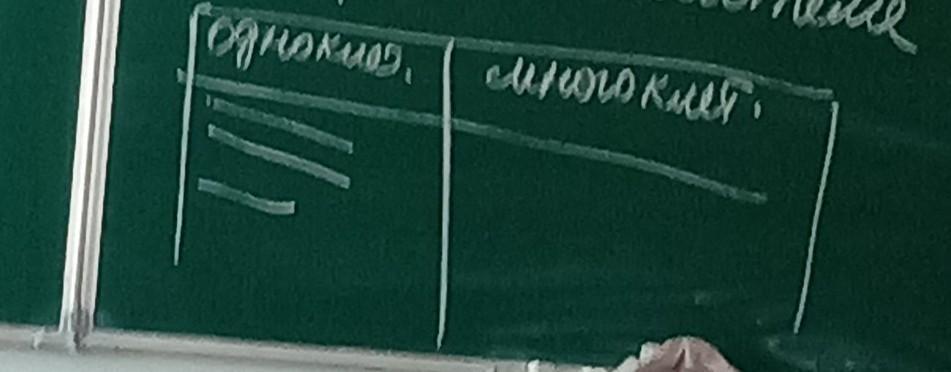 одноклет.
многоклет.